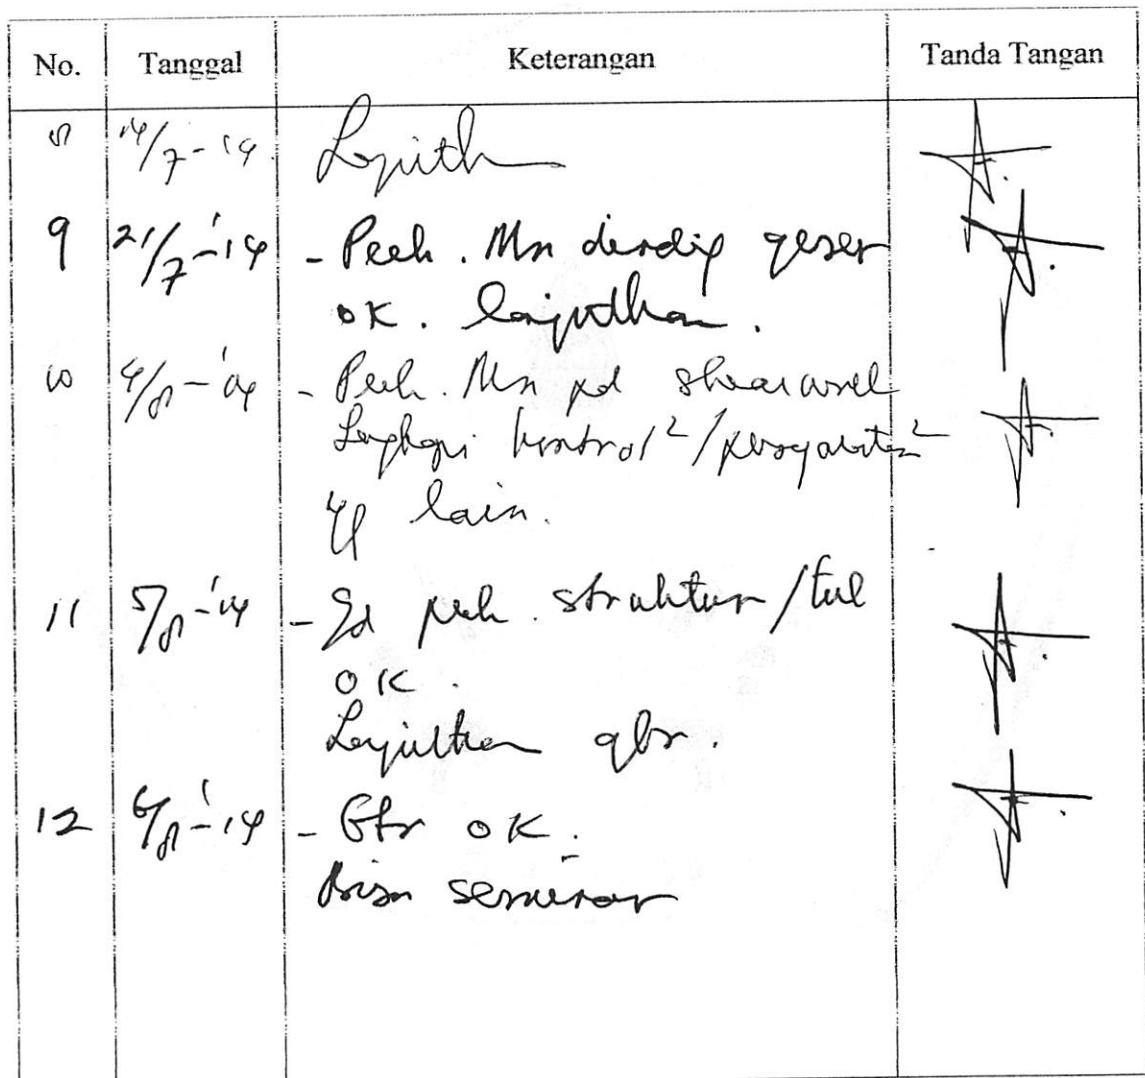 No. Tanggal Keterangan Tanda Tangan
8 14/7-'14. Lanjutk
9 21/7-'14 - Perh. Mn dinding geser
OK. Lanjutkan.
10 4/8-'14 - Perh. Mn pd shearwall
Lengkapi kontrol²/persyaratan²
yg lain.
11 5/8-'14 - perh. struktur/tul
OK.
Lanjutkan gbr.
12 6/8-'14 - Gbr OK.
Bisa seminar